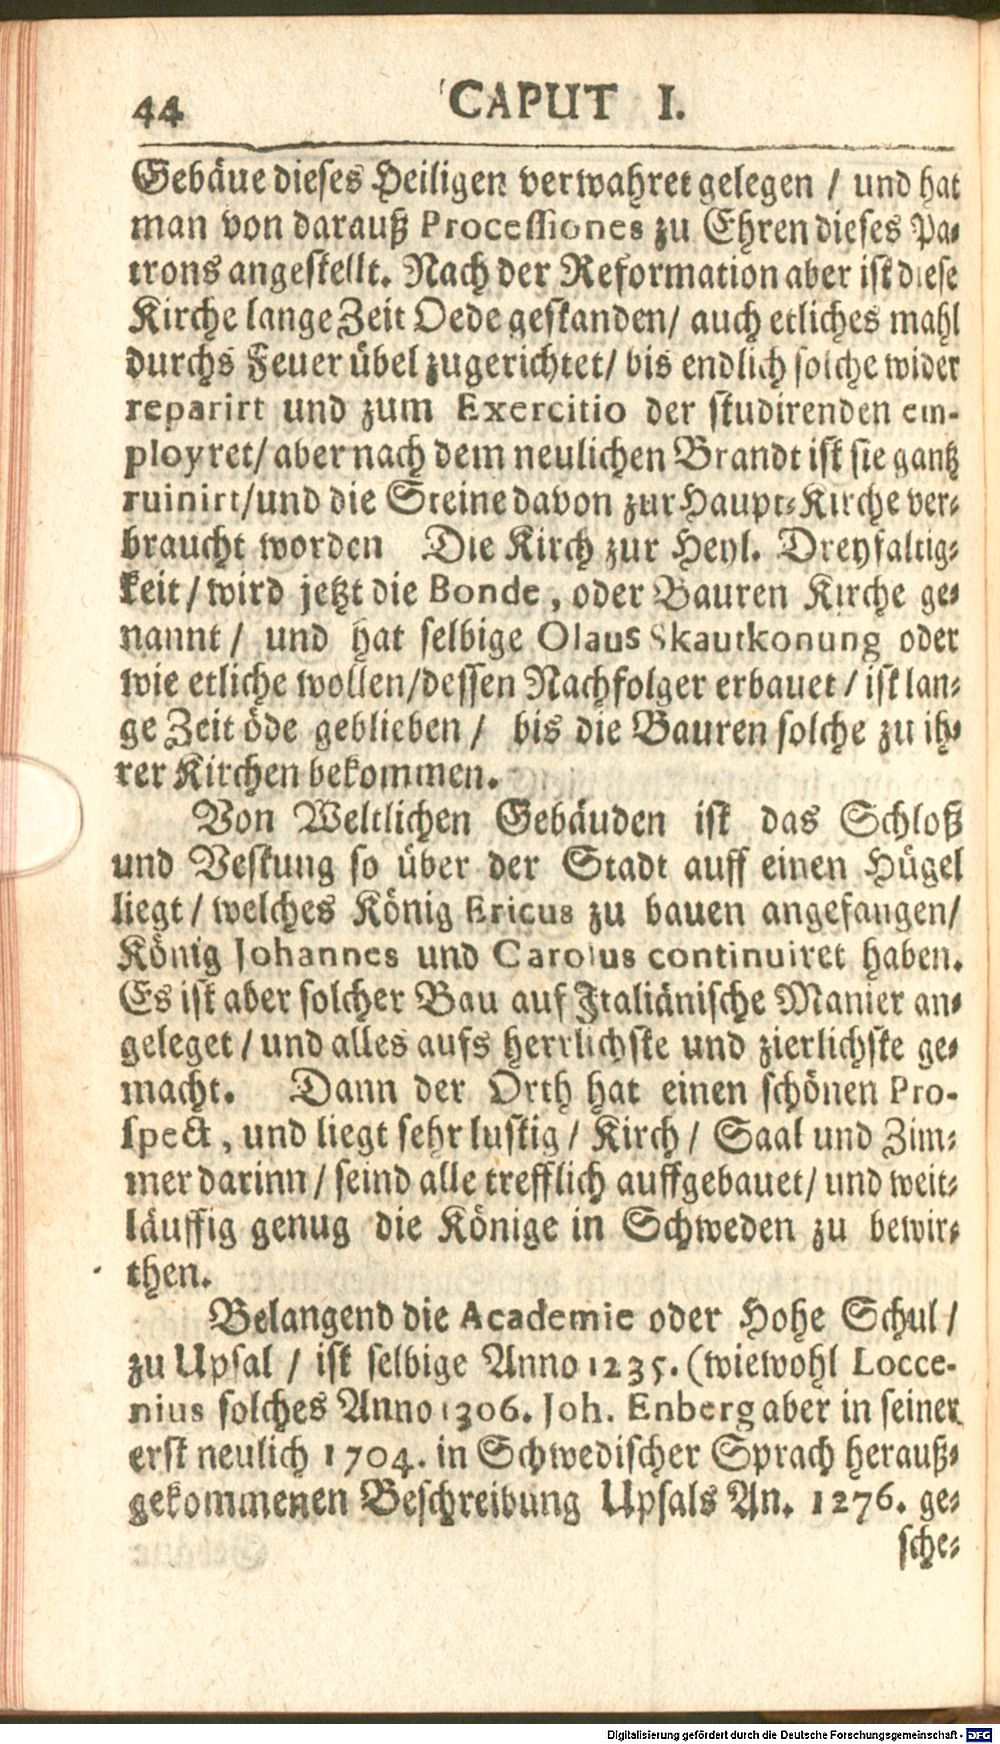 44 CAPUT I.
Gebäue dieses Heiligen verwahret gelegen / und hat
man von darauß Processiones zu Ehren dieses Pa-
trons angestellt. Nach der Reformation aber ist diese
Kirche lange Zeit Oede gestanden / auch etliches mahl
durchs Feuer übel zugerichtet / bis endlich solche wider
reparirt und zum Exercitio der studirenden em-
ployret / aber nach dem neulichen Brandt ist sie gantz
ruinirt / und die Steine davon zur Haupt-Kirche ver-
braucht worden Die Kirch zur Heyl. Dreyfaltig-
keit / wird jetzt die Bonde, oder Bauren Kirche ge-
nannt / und hat selbige Olaus Skautkonung oder
wie etliche wollen / dessen Nachfolger erbauet / ist lan-
ge Zeit öde geblieben / bis die Bauren solche zu ih-
rer Kirchen bekommen.
Von Weltlichen Gebäuden ist das Schloß
und Vestung so über der Stadt auff einen Hügel
liegt / welches König Ericus zu bauen angefangen /
König Johannes und Carolus continuiret haben.
Es ist aber solcher Bau auf Italiänische Manier an-
geleget / und alles aufs herrlichste und zierlichste ge-
macht. Dann der Orth hat einen schönen Pro-
spect, und liegt sehr lustig / Kirch / Saal und Zim-
mer darinn / seind alle trefflich auffgebauet / und weit-
läuffig genug die Könige in Schweden zu bewir-
then.
Belangend die Academie oder Hohe Schul /
zu Upsal / ist selbige Anno 1235. (wiewohl Locce-
nius solches Anno 1306. Joh. Enberg aber in seiner
erst neulich 1704. in Schwedischer Sprach herauß-
gekommenen Beschreibung Upsals An. 1276. ge-
sche-
Digitalisierung gefördert durch die Deutsche Forschungsgemeinschaft - DFG